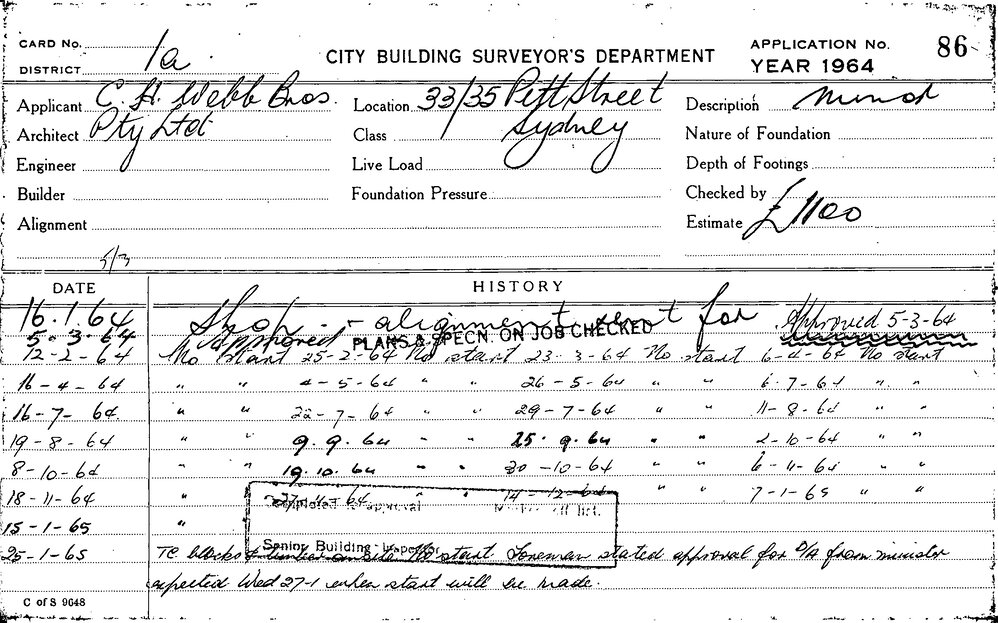 CARD No. 1a CITY BUILDING SURVEYOR'S DEPARTMENT APPLICATION No. 86
DISTRICT YEAR 1964
Applicant C. H. Webb Bros. Location 33/35 Pitt Street Description Minor
Architect Pty Ltd Class Sydney Nature of Foundation
Engineer Live Load Depth of Footings
Builder Foundation Pressure Checked by
Alignment Estimate £1100
5/3
DATE HISTORY
16.1.64 Shop alignment sent for Approved 5-3-64
5.3.64 Approved PLANS & SPECN. ON JOB CHECKED
12-2-64 No start 25-2-64 No start 23-3-64 No start 6-4-64 No start
16-4-64 " " 4-5-64 " " 26-5-64 " " 6-7-64 " "
16-7-64 " " 22-7-64 " " 29-7-64 " " 11-8-64 " "
19-8-64 " " 9.9.64 " " 25.9.64 " " 2-10-64 " "
8-10-64 " " 19.10.64 " " 30-10-64 " " 6-11-64 " "
18-11-64 " 14-12-64 " " 7-1-65 " "
Completed as approval off list.
15-1-65 "
Senior Building Inspector
25-1-65 TC blocks & timber on site No start. Foreman stated approval for D/A from minister
expected Wed 27-1 when start will be made.
C of S 9648